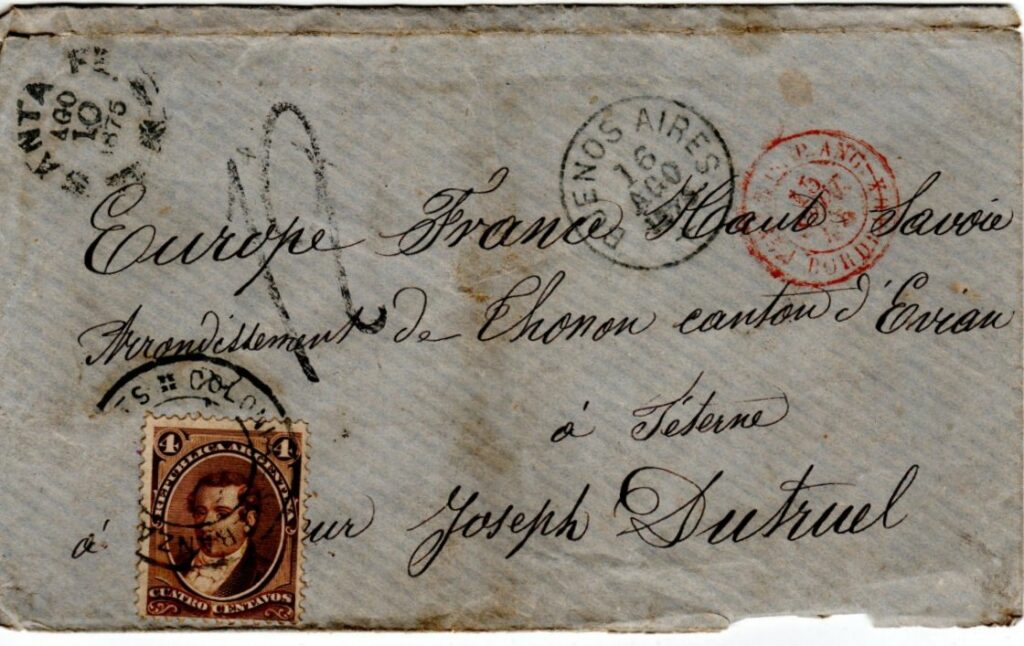 SANTA FE
AGO
10
1875
BUENOS AIRES
16
AGO
ANG.
BORD
Europe France Haute Savoie
Arrondissement de Thonon canton d'Evian
à Féterne
à ur Joseph Dutruel
COLON
FRANZA
4 4
REPUBLICA ARGENTINA
CUATRO CENTAVOS